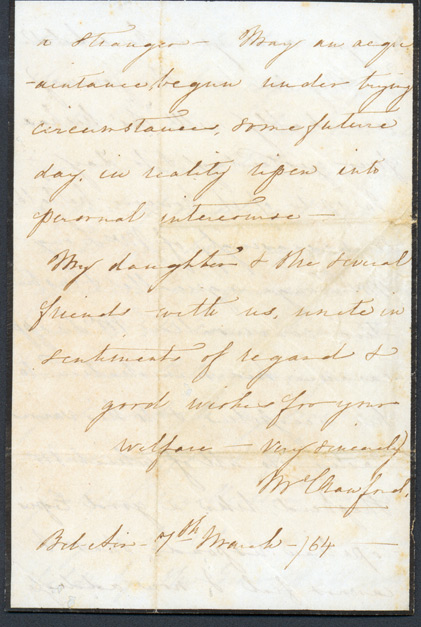 a stranger — May an acqu
-aintance, begun under trying
circumstances, some future
day, in reality ripen into
personal intercourse —
My daughter & the several
friends with us, unite in
sentiments of regard &
good wishes for your
welfare — Very sincerely
M Crawford.
Bel Air — 7th March — /64 —